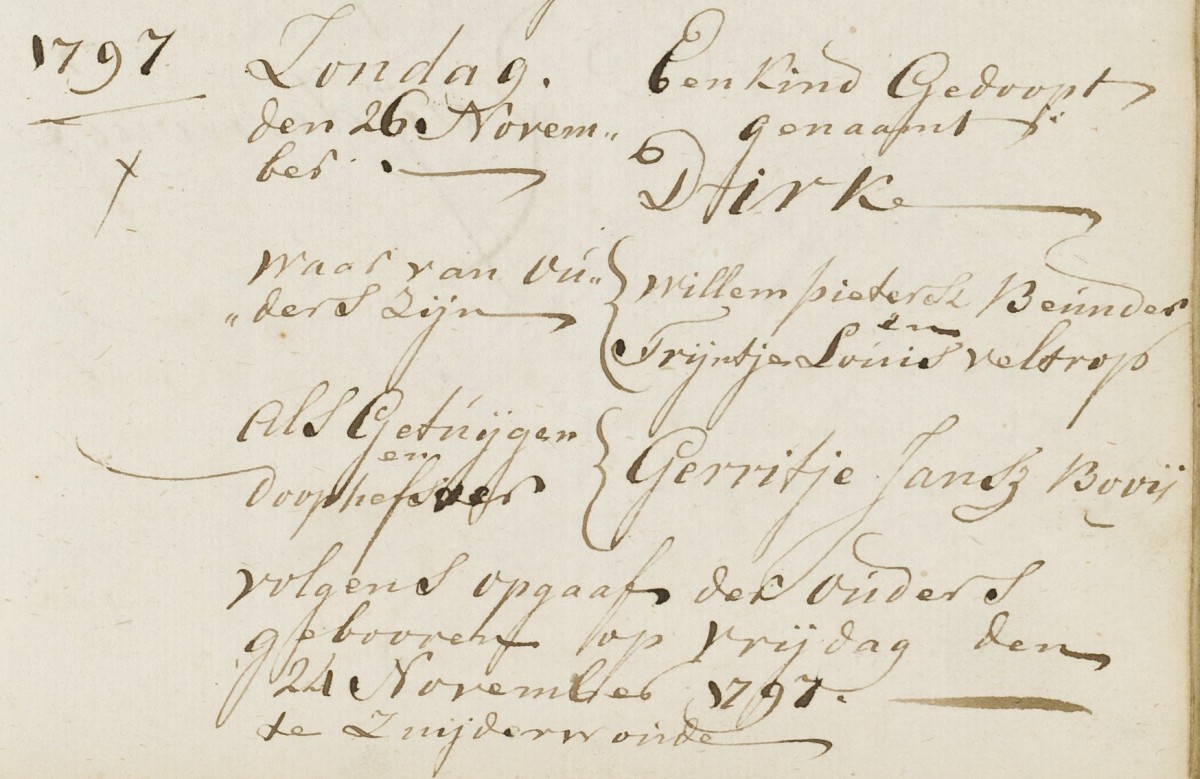 1797
Zondag.
den 26. Novem„
ber.
Een Kind Gedoopt
genaamt
Dirk
Waar van Ou„
„ders Zijn
Willem pietersz Beunder
en
Trijntje Louis Veltrop
Als Getuijgen
en
Doophefster
Gerritje Jansz Bovij
volgens opgaaf der Ouders
gebooren op Vrijdag den
24 November 1797.
te Zuijderwoude